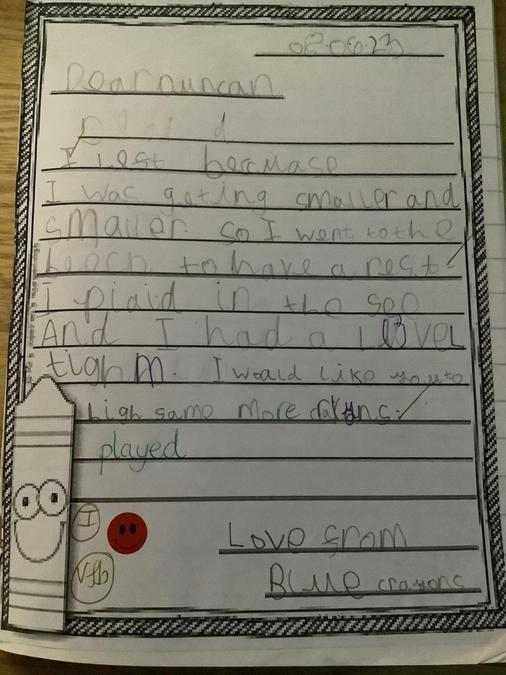 02.06.23
Dear Duncan
I lest becmase
I was geting smaller and
smaller. so I went to the
beech to have a rest
I plaid in the see
And I had a lovel
tighm. I would like you to
bigh some more crayens.
played
I
Vfb
Love from
BLUE crayons